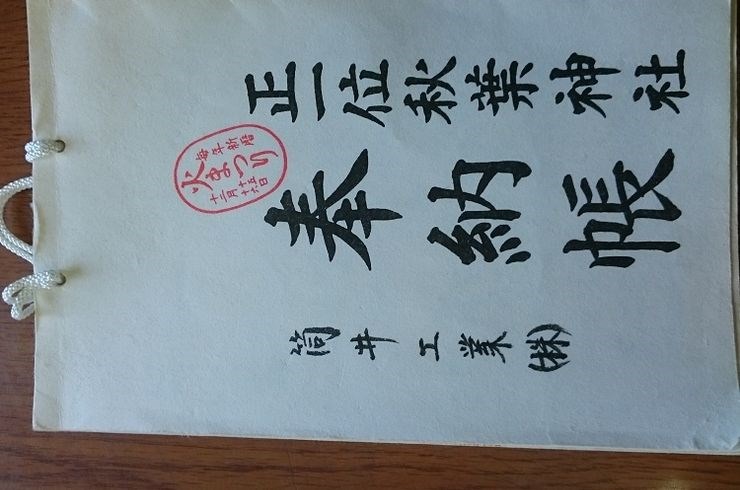 正一位秋葉神社
奉納帳
筒井工業㈱
毎年新暦
火まつり
十二月十五日十六日